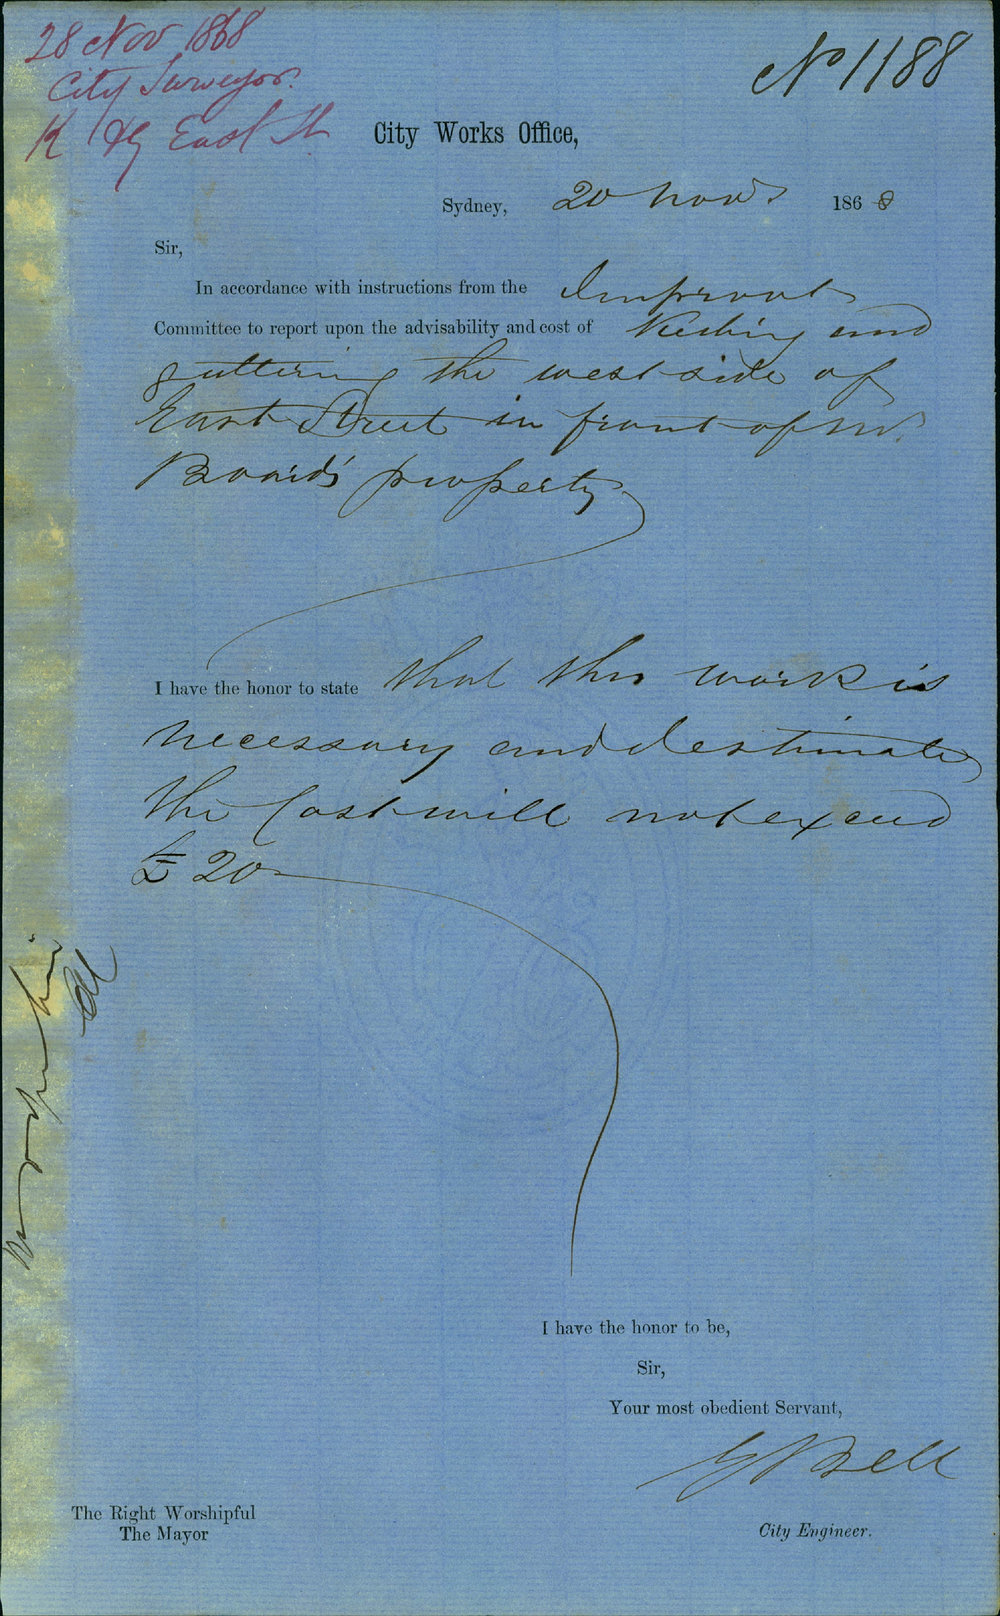 28 Nov 1868
City Surveyor.
K & G East St
No 1188
City Works Office,
Sydney, 20 Novr 1868
Sir,
In accordance with instructions from the Improvt
Committee to report upon the advisability and cost of Kerbing and
guttering the west side of
East Street in front of Mr.
Board's property
I have the honor to state that this work is
necessary and I estimate
the Cost will not exceed
£20
I have the honor to be,
Sir,
Your most obedient Servant,
Bell
City Engineer.
The Right Worshipful
The Mayor